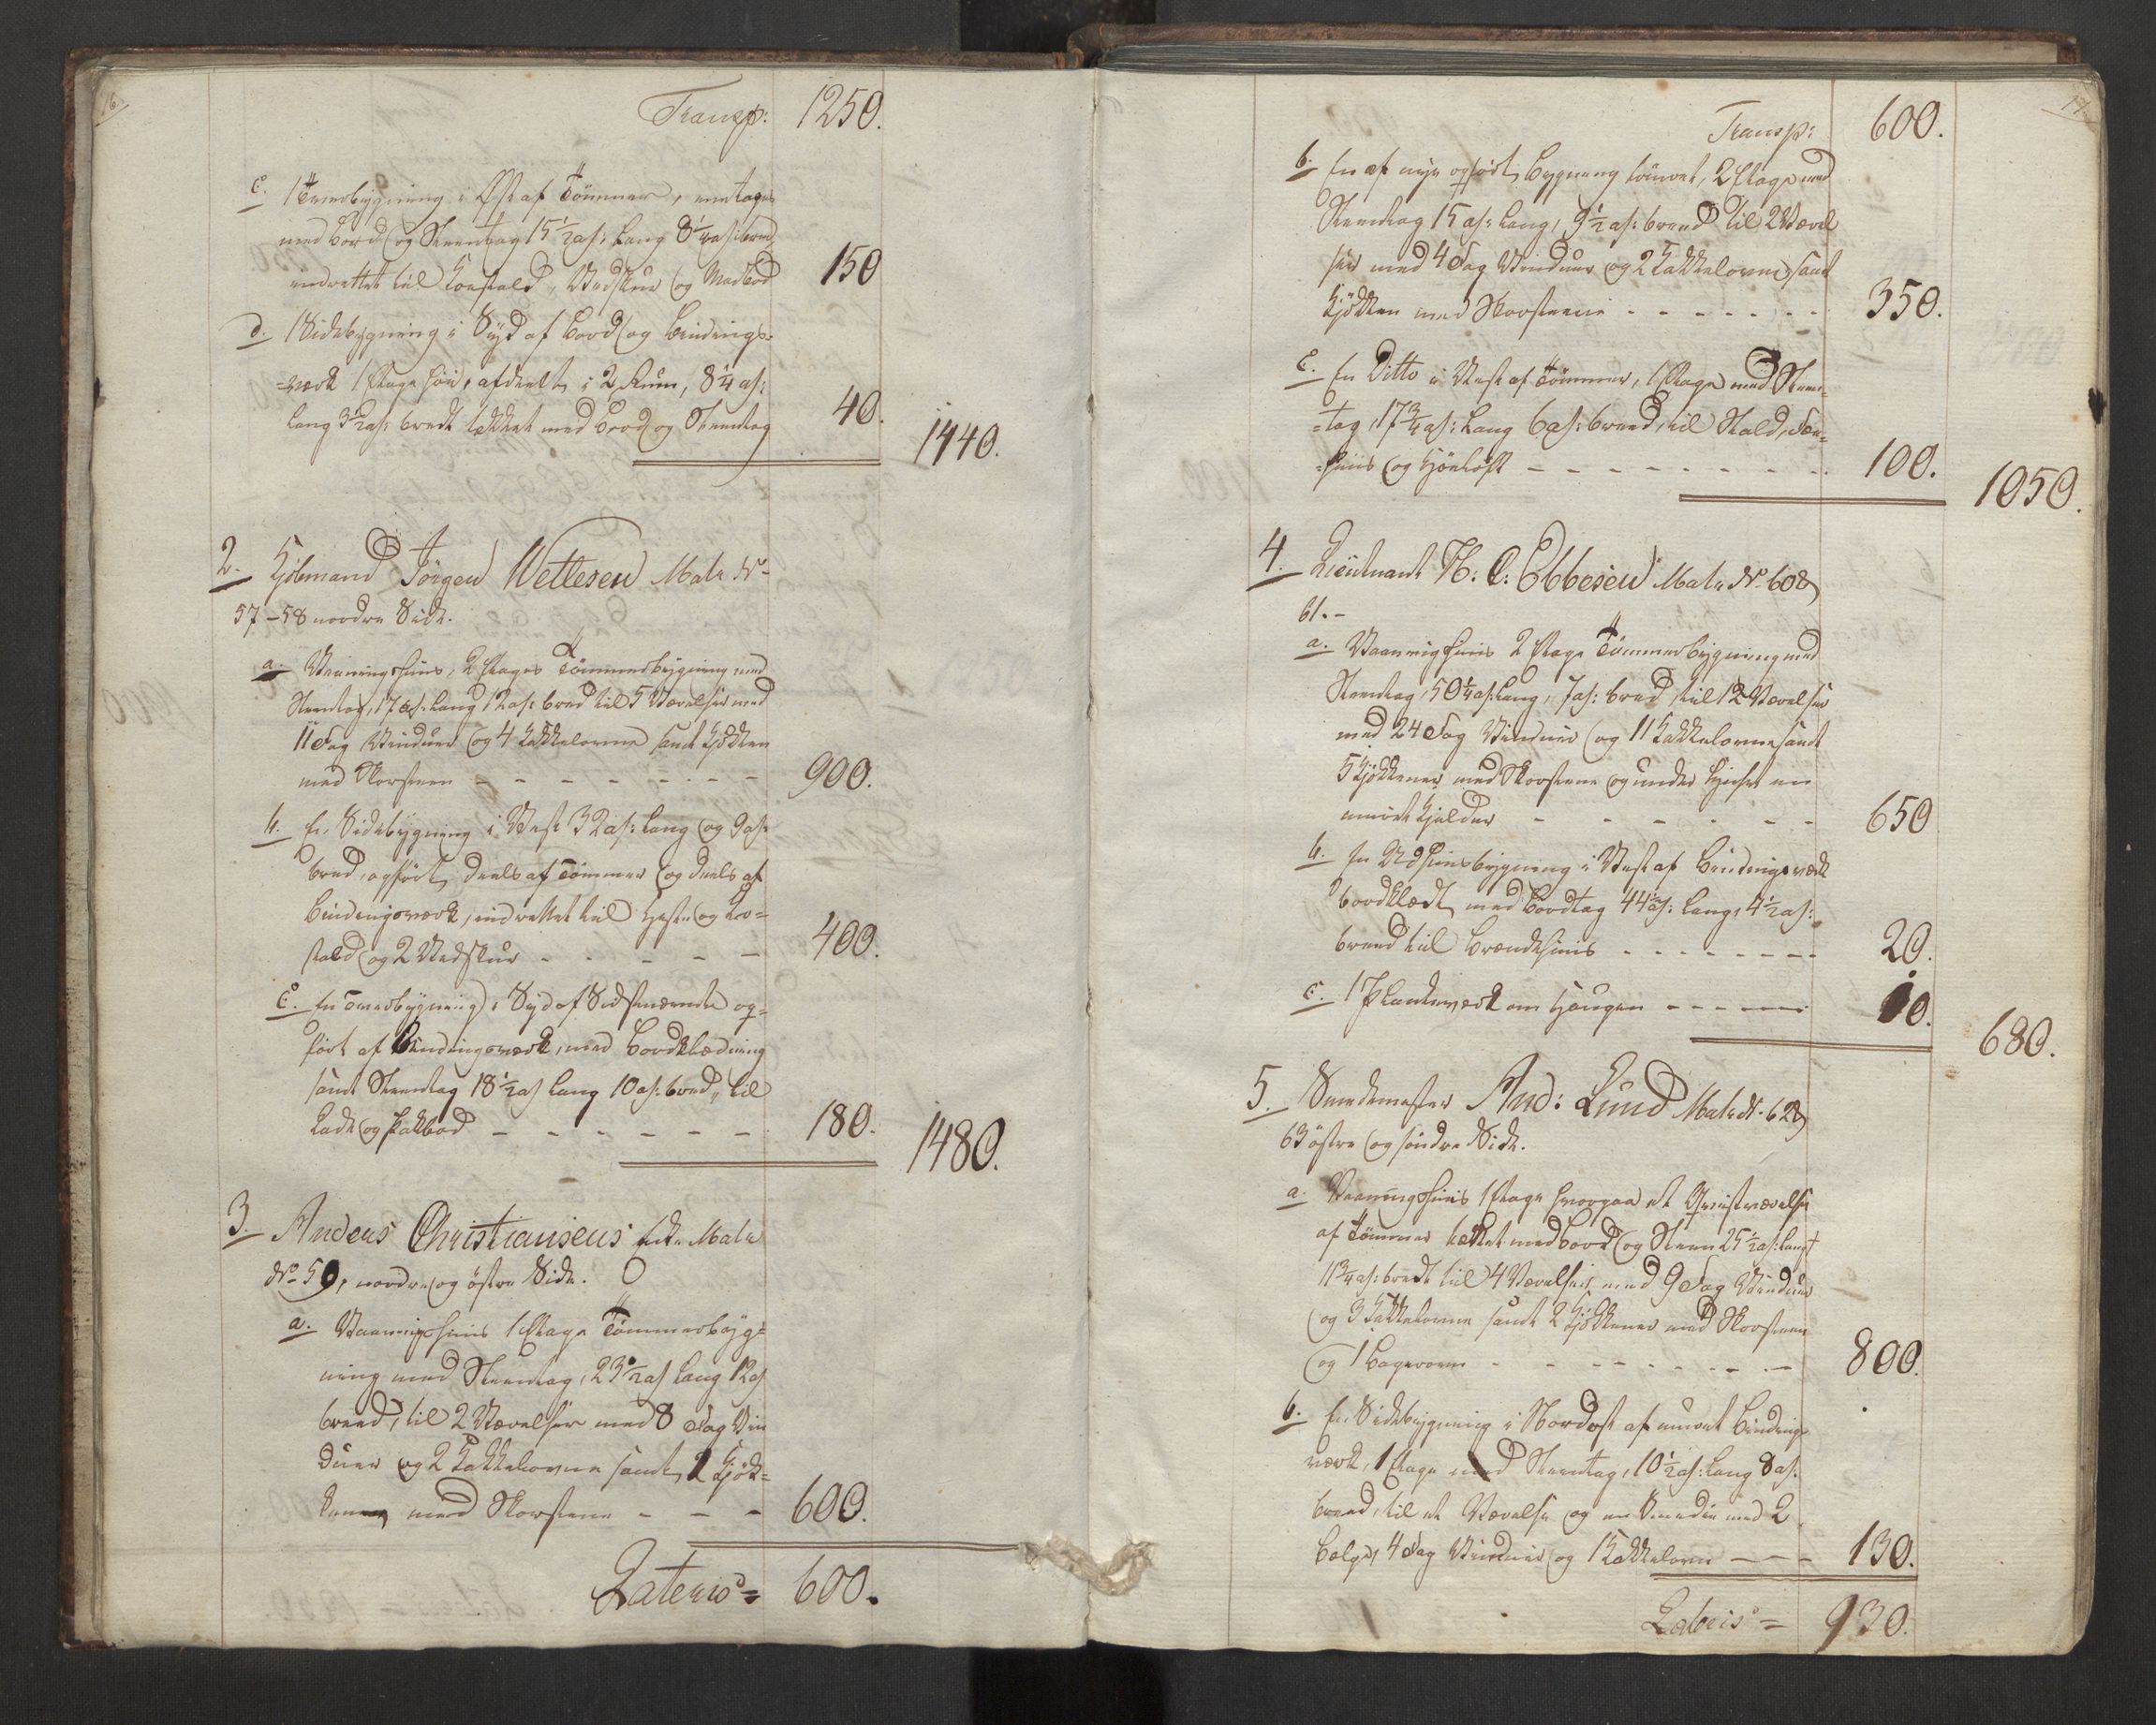 16.
Transp: 1250.
c. 1 Tverbygning i Øst af Tömmer, een tages
med Bord og Steentag 15 1/2 al: lang 8 1/4 al: bred
indrettet til Koestald, Vedskur og Madbod 150
d. 1 Sidebygning i Syd af Bord og Bindings=
=værk 1 Etage høi, afdeelt i 2 Rum, 8 1/4 al:
lang 3 1/2 al: bredt tækket med Bord og Steentag 40. 1440.
2. Kjöbmand Jörgen Wettesen Matr No
57-58 nordre Side.
a. Vaaningshuus, 2 Etages Tömmerbygning med
Steentag, 17 al: lang 12 al: bred til 5 Værelser med
11 Fag Vinduer og 4 Kakkelovne samt Kjökken
med Skorsteen - - - - - - - 900.
b. En Sidebygning i Vest 32 al: lang og 9 al:
bred, opfört deels af Tömmer og deels af
Bindingsværk, indrettet til Heste og Koe=
stald og 2 Vedskur - - - - - 400.
c. En Tverbygning i Syd af Sidstnævnte op=
fört af Bindingsværk, med Bordklædning
samt Steentag 18 1/2 al lang 10 al: bred, til
Lade og Pakbod - - - - - - 180. 1480.
3. Anders Christiansens Enke Matr
No 59, nordre og östre Side.
a. Vaaningshuus 1 Etage Tömmerbyg=
ning med Steentag, 23 1/2 al lang 12 al
breed, til 2 Værelser med 8 Fag Vin
duer og 2 Kakkelovne samt 2 Kjök=
kener med Skorstene - - - 600.
Lateris = 600.
17.
Transp: 600.
b. En af nye opfört Bygning tömret, 2 Etage med
Steentag 15 al: lang, 9 1/2 al: breed til 2 Værel
ser med 4 Fag Vinduer og 2 Kakkelovne, samt
Kjökken med Skorsteen - - - - - - - 350.
c. En Ditto i Vest af Tömmer, 1 Etage med Steen=
=tag, 17 3/4 al: lang 6 al: breed, til Stald, Fæe=
=huus og Höeloft - - - - - - - - - 100. 1050.
4. Lieutnant H: C: Ebbesen Matr No. 60 &
61.-
a. Vaaningshuus 2 Etage Tömmerbygning med
Steentag, 50 1/4 al: lang, 7 al: bred til 12 Værelser
med 24 Fag Vinduer og 11 Kakkelovne samt
5 Kjökkener med Skorstene og under Huset en
muret Kjelder - - - - - - 650
b. En Udhuusbygning i Vest af Bindingsværk
bordklædt med Bordtag 44 1/2 al: lang, 4 1/2 al:
breed til Brændehuus - - - - - - - 20.
c. 1 Plankeværk om Haugen - - - - - 10. 680.
5. Smedemester And: Lund Matr No. 62 &
63 östre og söndre Side.
a. Vaaningshuus 1 Etage hvorpaa et Qvistværelse
af Tömmer tækket med Bord og Steen 25 1/2 al: langt
11 3/4 al: bredt til 4 Værelser med 9 Fag Vinduer
og 3 Kakkelovne samt 2 Kjökkener med Skorsteen
og 1 Bagerovn - - - - - - - - 800.
b. En Sidebygning i Nordost af muret Binding
værk, 1 Etage med Steentag, 10 1/2 al: lang 8 al:
breed, til et Værelse og en Smedie med 2
Bælge, 4 Fag Vinduer og 1 Kakkelovn - - - 130.
Lateris = 930.